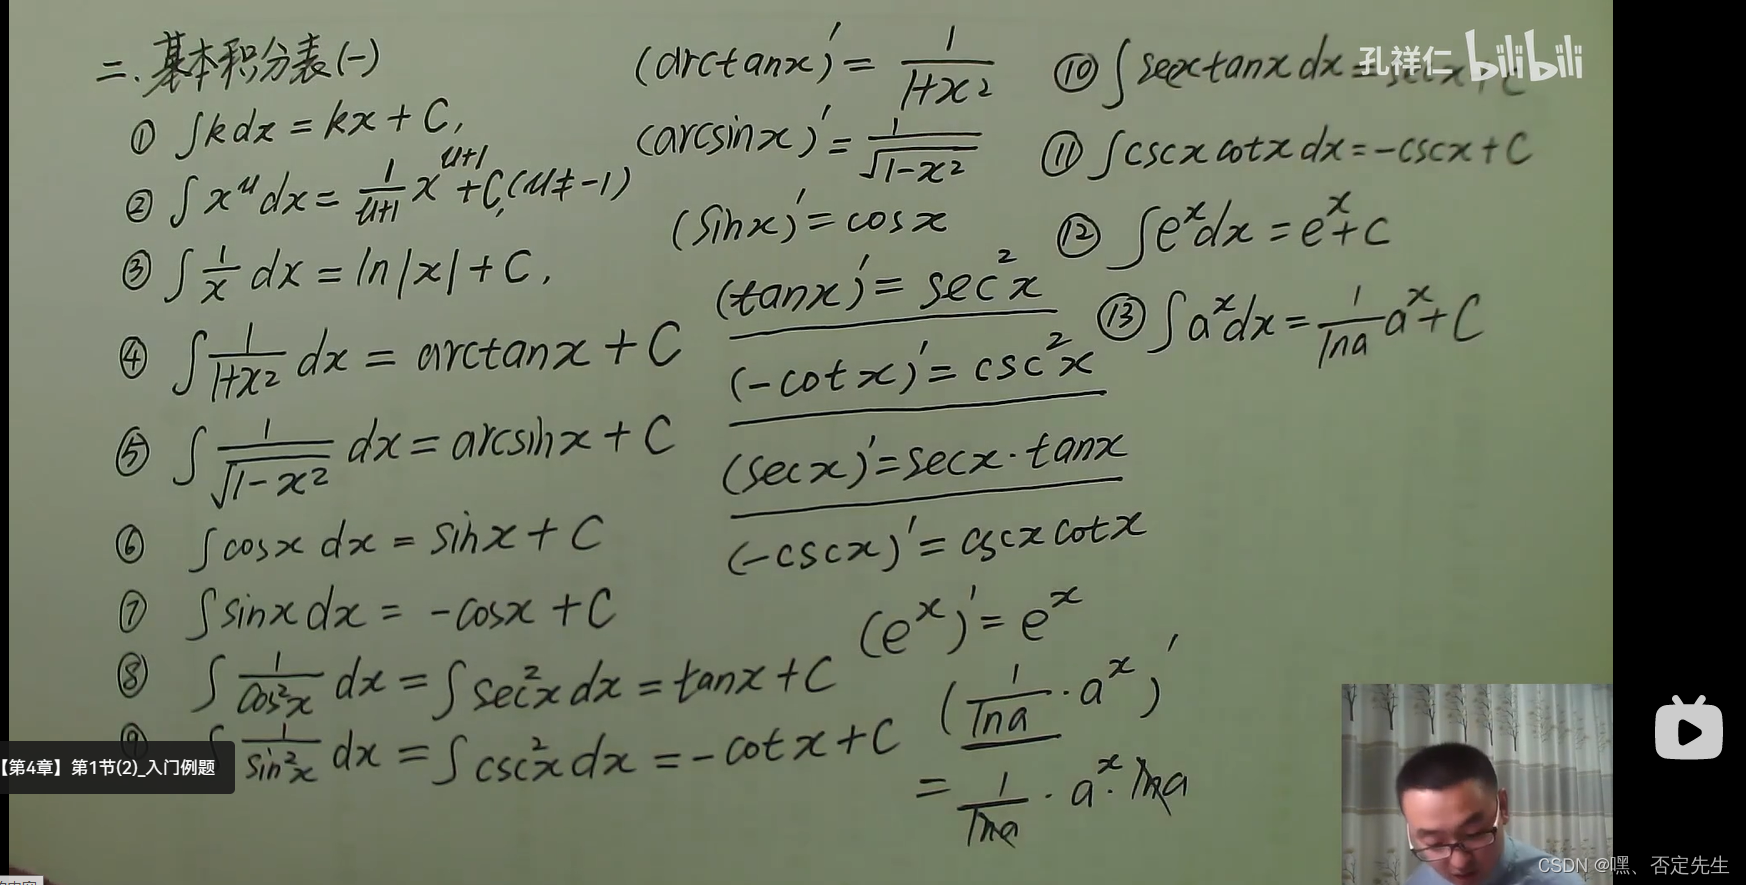 二. 基本积分表(一)
① ∫kdx = kx + C,
② ∫x^μ dx = 1/(μ+1) x^(μ+1) + C, (μ≠-1)
③ ∫ 1/x dx = ln|x| + C,
④ ∫ 1/(1+x²) dx = arctanx + C
⑤ ∫ 1/√(1-x²) dx = arcsinx + C
⑥ ∫cosx dx = sinx + C
⑦ ∫sinx dx = -cosx + C
⑧ ∫ 1/cos²x dx = ∫sec²x dx = tanx + C
⑨ ∫ 1/sin²x dx = ∫csc²x dx = -cotx + C
(arctanx)′ = 1/(1+x²)
(arcsinx)′ = 1/√(1-x²)
(sinx)′ = cosx
(tanx)′ = sec²x
(-cotx)′ = csc²x
(secx)′ = secx·tanx
(-cscx)′ = cscx cotx
(e^x)′ = e^x
(1/lna · a^x)′
= 1/lna · a^x · lna
⑩ ∫secx tanx dx = secx + C
⑪ ∫cscx cotx dx = -cscx + C
⑫ ∫e^x dx = e^x + C
⑬ ∫a^x dx = 1/lna a^x + C
孔祥仁 bilibili
【第4章】第1节(2)_入门例题
CSDN @嘿、否定先生